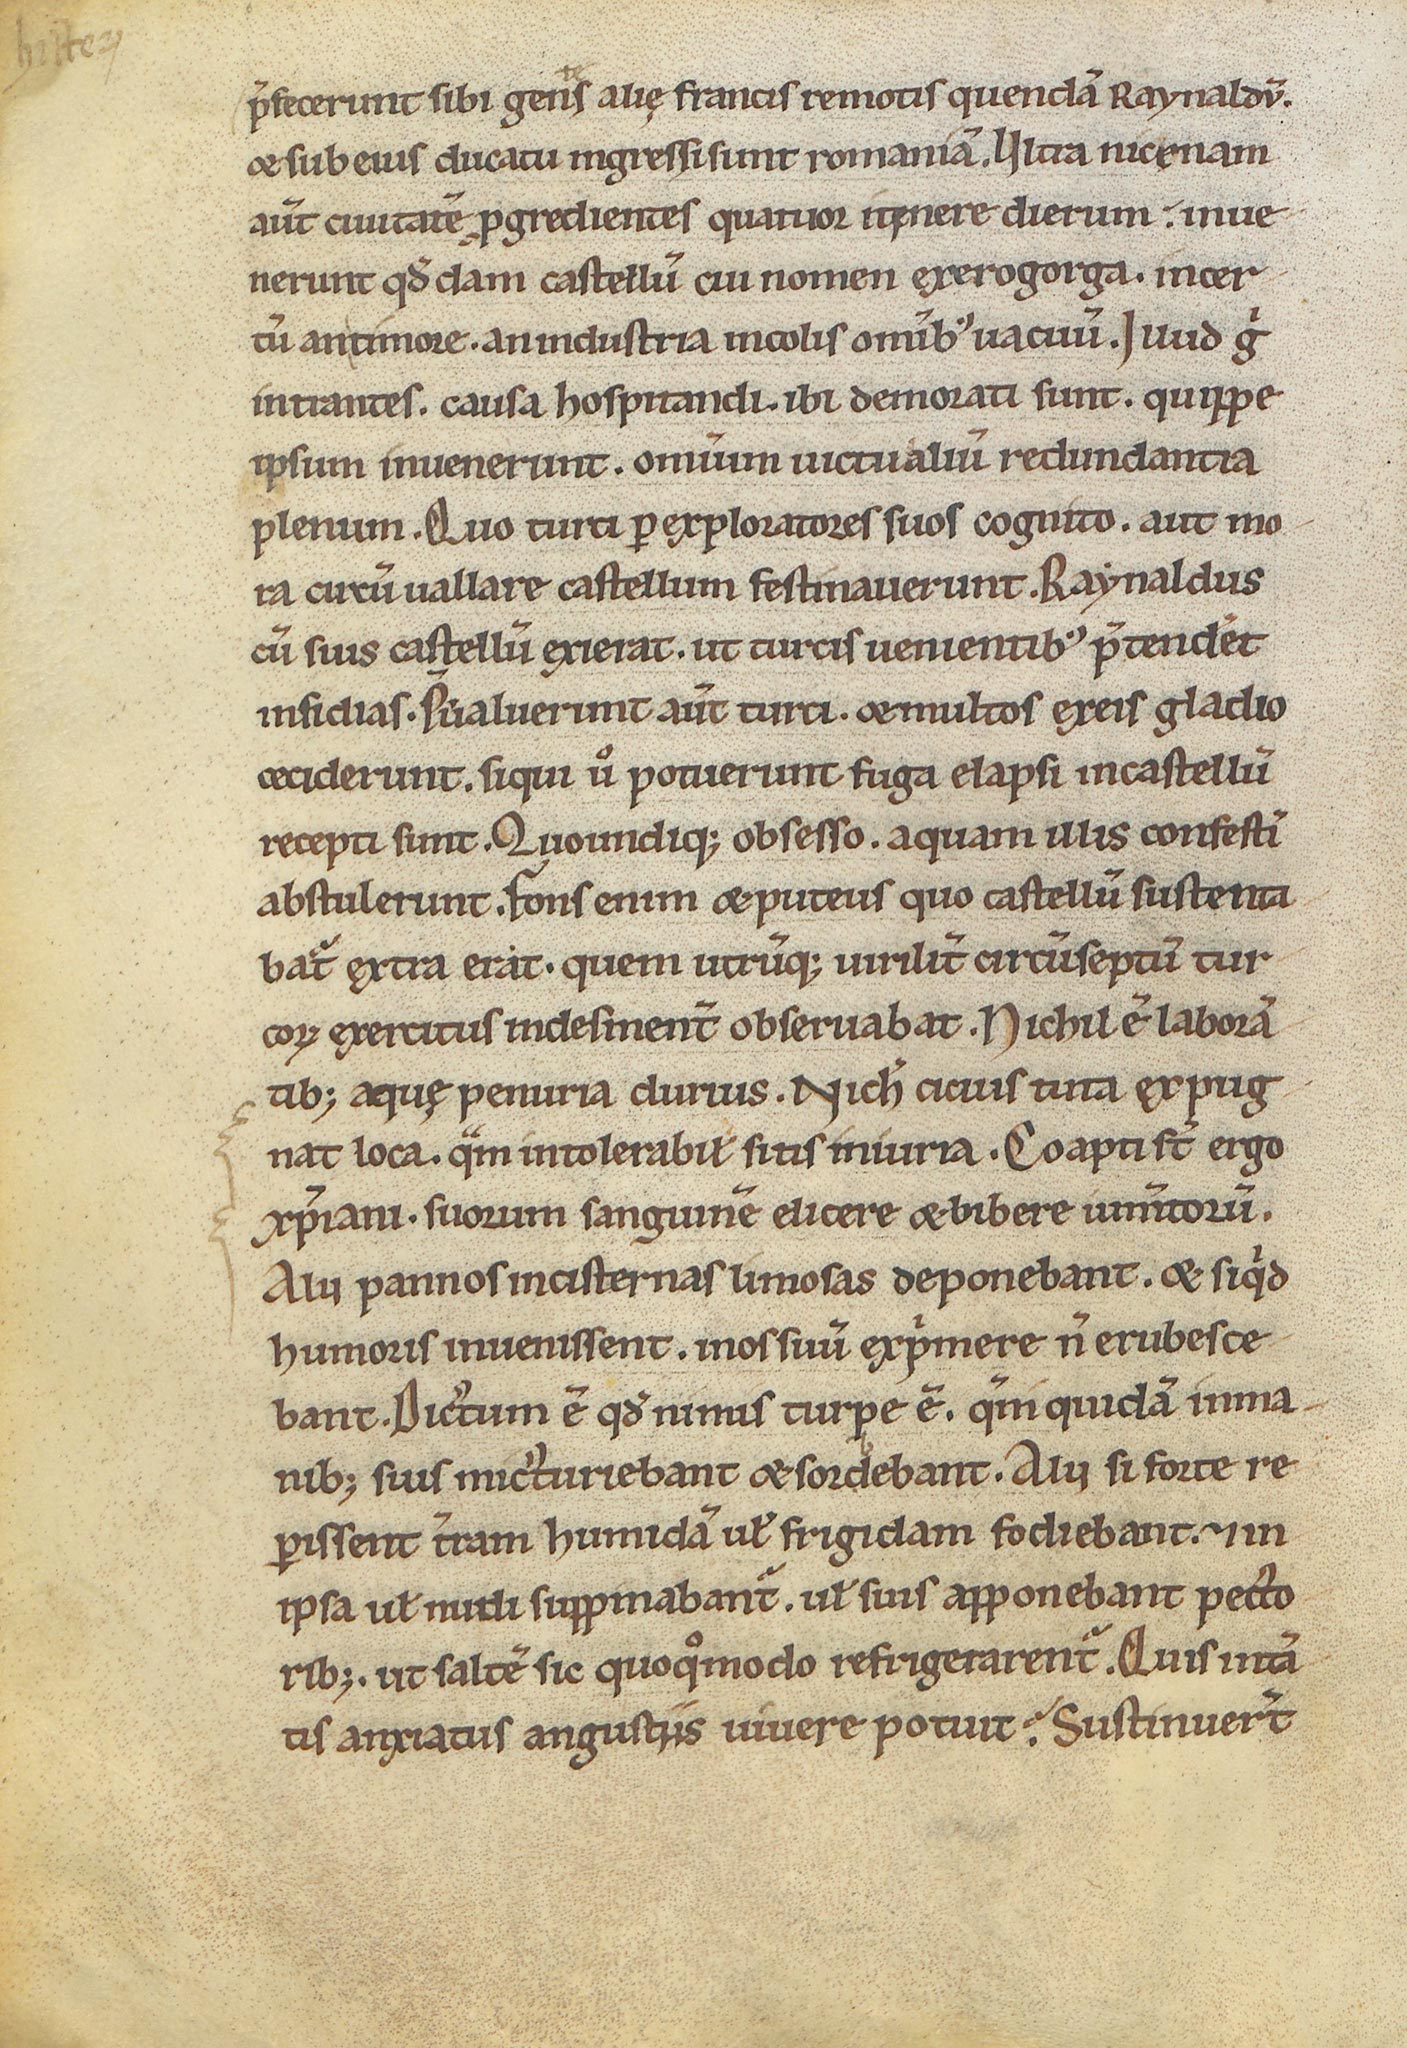 p̄fecerunt sibi gen̄s alię francis remotis quendā Raynaldū.
& sub eius ducatu ingressi sunt romaniā. Vltra nicenam
aūt ciuitatē ꝓgredientes quatuor itinere dierum. inue
nerunt qđdam castellū cui nomen exerogorga. incer
tū an timore. an industria incolis om̄ibꝰ uacuū. Illud g̍
intrantes. causa hospitandi. ibi demorati sunt. quippe
ipsum inuenerunt. omīum uictualiū redundantia
plenum. Quo turci ꝑ exploratores suos cognito. aut mo
ra circū uallare castellum festinauerunt. Raynaldus
cū suis castellū exierat. ut turcis uenientibꝰ p̄tendet̄
insidias. P̄ualuerunt aūt turci. & multos ex eis gladio
ceciderunt. siqui ůͦ potuerunt fuga elapsi in castellū
recepti sunt. Quo undiq; obsesso. aquam illis confestī
abstulerunt. fons enim & puteus quo castellū sustenta
bat᷑ extra erat. quem utrūq; uirilit̄ circūseptū tur
coꝝ exercitus indesinent̄ obseruabat. Nichil ē laborā
tib; aquę penuria durius. Nich̄ cicius tuta expug
nat loca. qͣm intolerabil̄ sitis iniuria. Coapti st̄ ergo
xp̄iani. suorum sanguinē elicere & bibere ium̄torū.
Alij pannos in cisternas limosas deponebant. & siqͥd
humoris inuenissent. in os suū exp̍mere n̄ erubesce
bant. Dictum ē qđ nimis turpe ē. qm̄ quidā in ma
nib; suis micturiebant & sordebant. Alij si forte re
ꝑissent t̄ram humidā ul̄ frigidam fodiebant. ⁊ in
ipsa ul̄ nudi suppinabant᷑. ul̄ suis apponebant pecto
rib;. ut saltē sic quoqͦmodo refrigerarent᷑. Quis in tā
tis anxiatus angustijs uiuere potuit? Sustinuer̄t